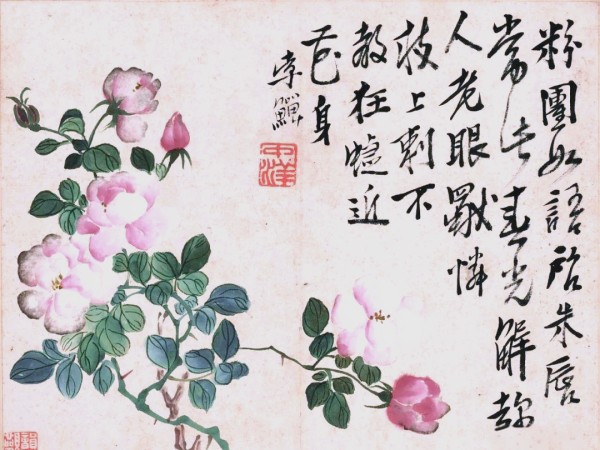 粉團如語啟朱唇
常占春光解
人老眼憐
枝上刺不
教狂蝶近
花身
李鱓